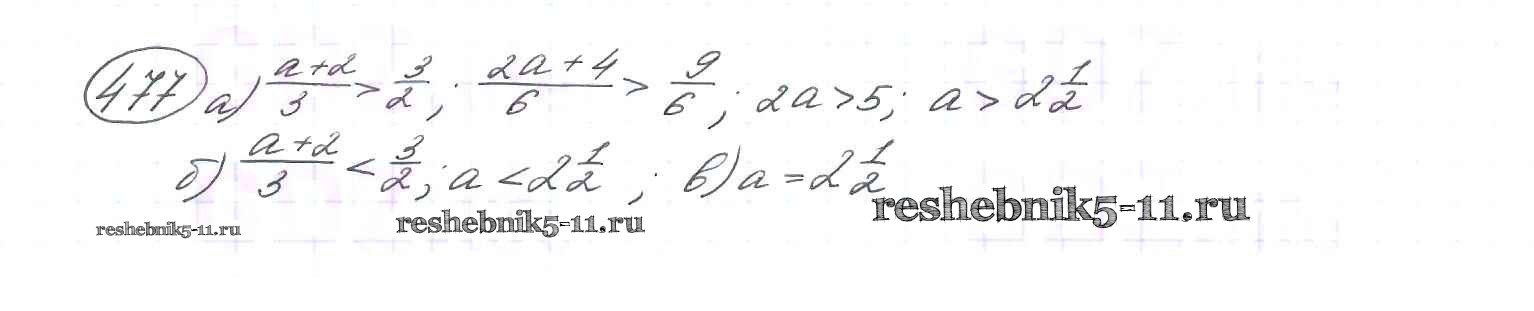 477 а) (a+2)/3 > 3/2; (2a+4)/6 > 9/6; 2a > 5; a > 2 1/2
б) (a+2)/3 < 3/2; a < 2 1/2; в) a = 2 1/2
reshebnik5-11.ru reshebnik5-11.ru reshebnik5-11.ru